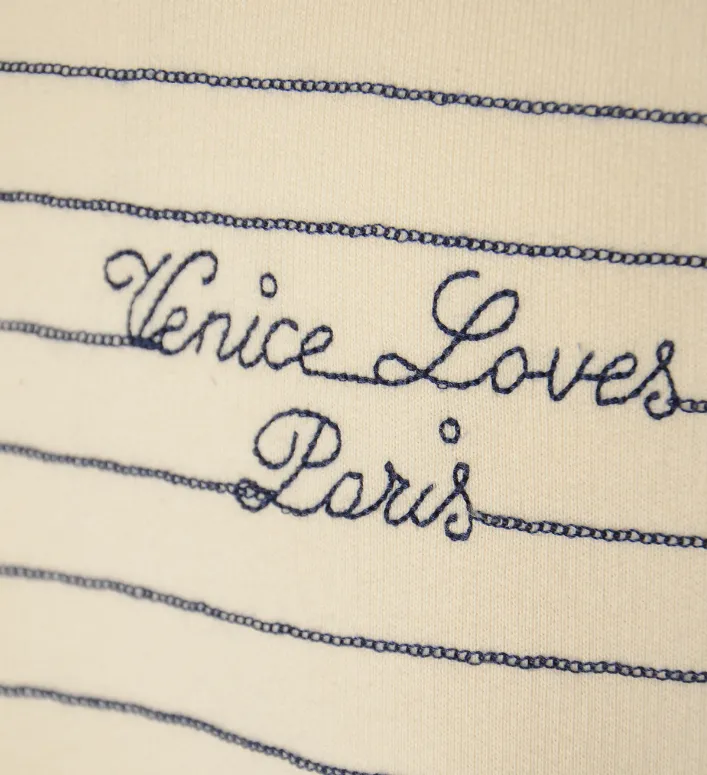 Venice Loves
Paris